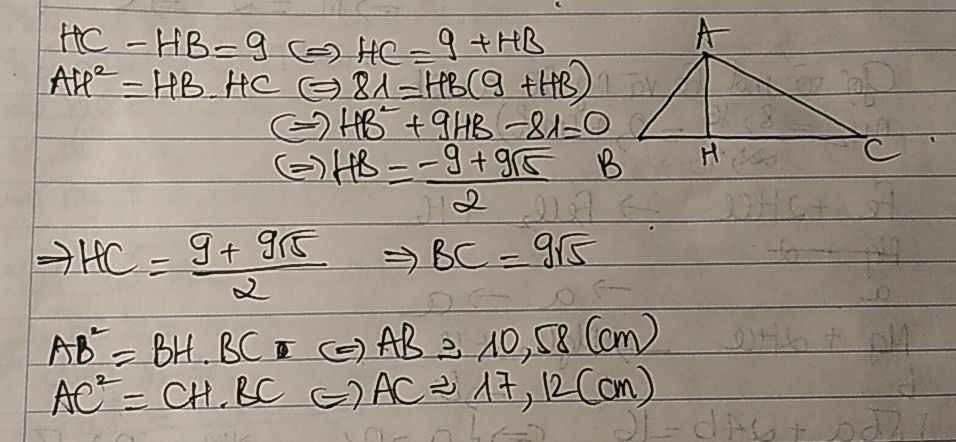 HC - HB = 9 <=> HC = 9 + HB
AH² = HB.HC <=> 81 = HB(9 + HB)
<=> HB² + 9HB - 81 = 0
<=> HB = (-9 + 9√5)/2
=> HC = (9 + 9√5)/2 => BC = 9√5
AB² = BH.BC <=> AB ≈ 10,58 (cm)
AC² = CH.BC <=> AC ≈ 17,12 (cm)
A
B H C